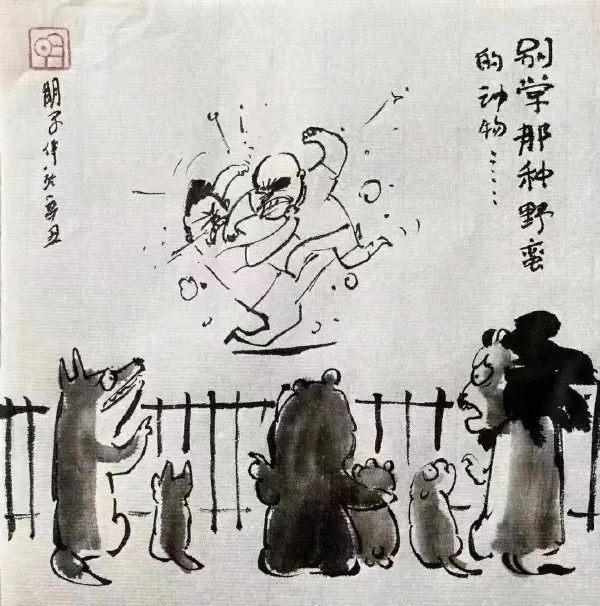 别学那种野蛮
的动物……
朋子作於辛丑